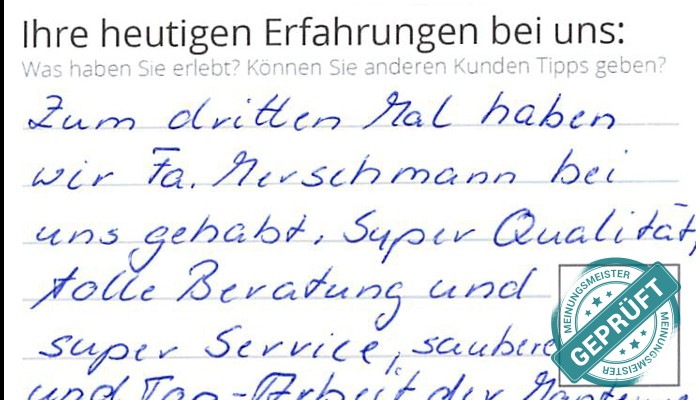 Ihre heutigen Erfahrungen bei uns:
Was haben Sie erlebt? Können Sie anderen Kunden Tipps geben?
Zum dritten Mal haben
wir Fa. Merschmann bei
uns gehabt. Super Qualität,
tolle Beratung und
super Service, saubere
und Top-Arbeit der
MEINUNGSMEISTER
GEPRÜFT
MEINUNGSMEISTER